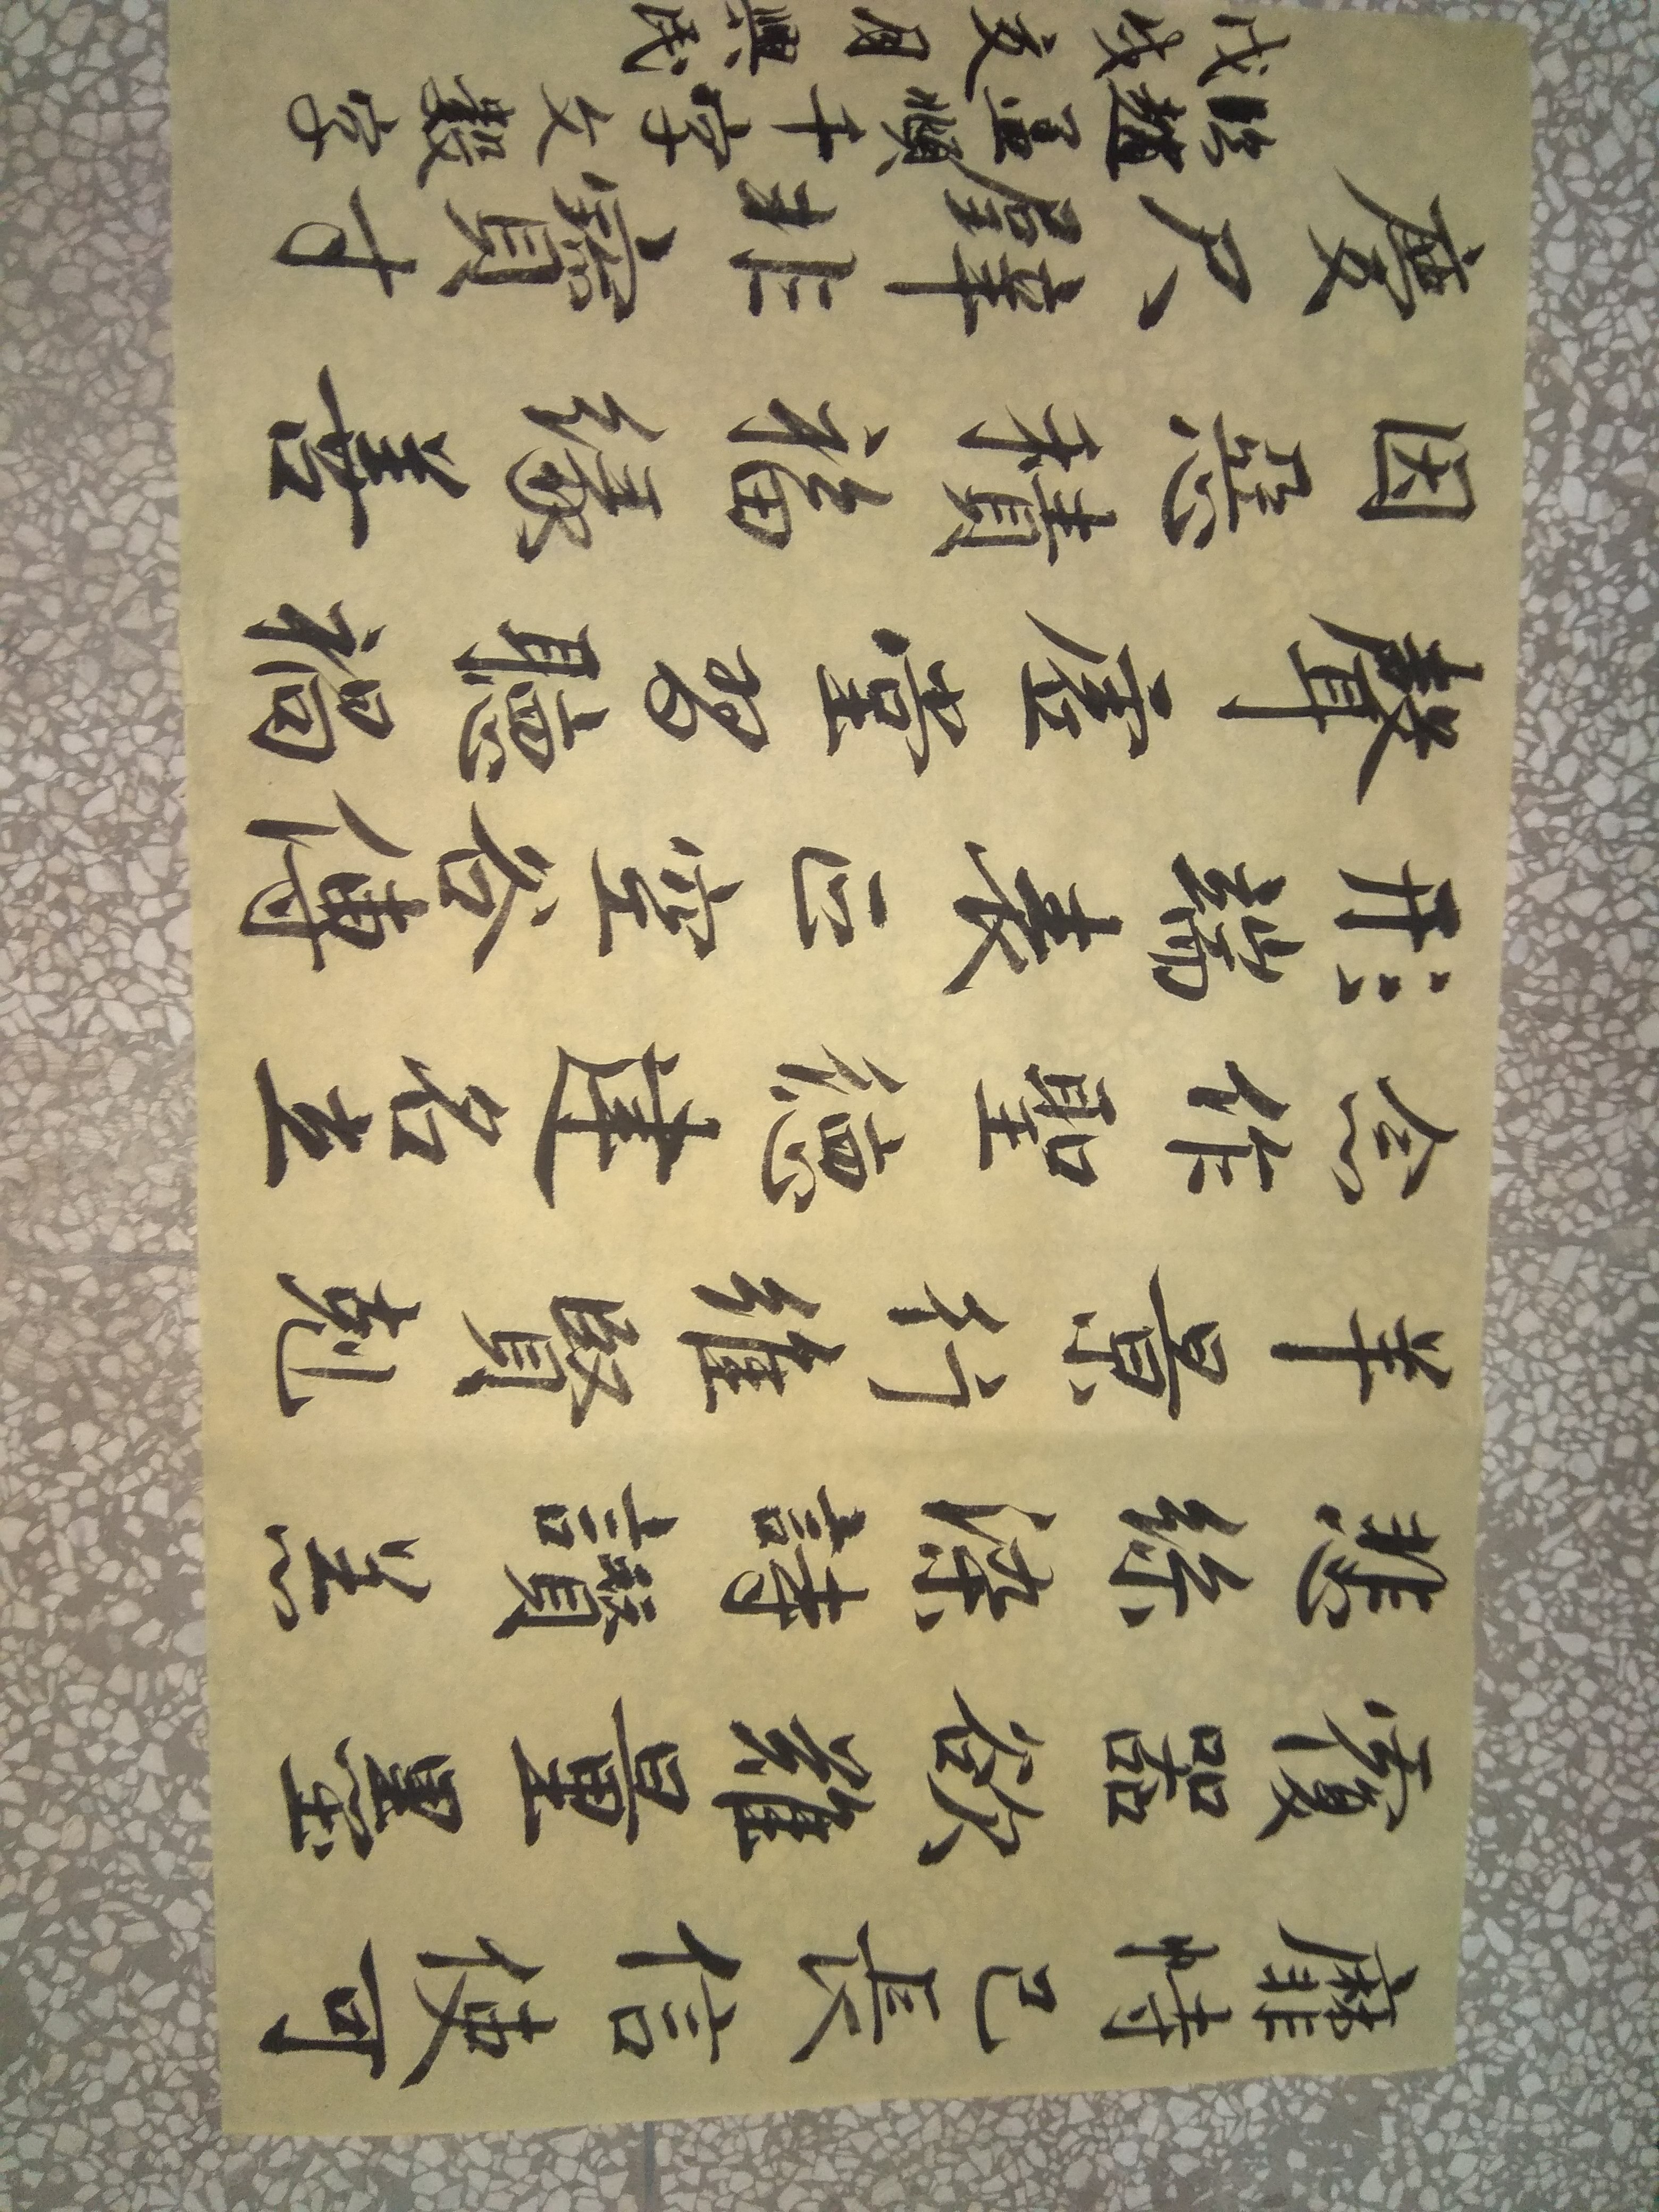 靡恃己長信使可
覆器欲難量墨
悲絲染詩讚羔
羊景行維賢剋
念作聖德建名立
形端表正空谷傳
聲虛堂習聽禍
因惡積福緣善
慶尺璧非寶寸
臨趙孟頫千字文数字
戊戌夏月興民